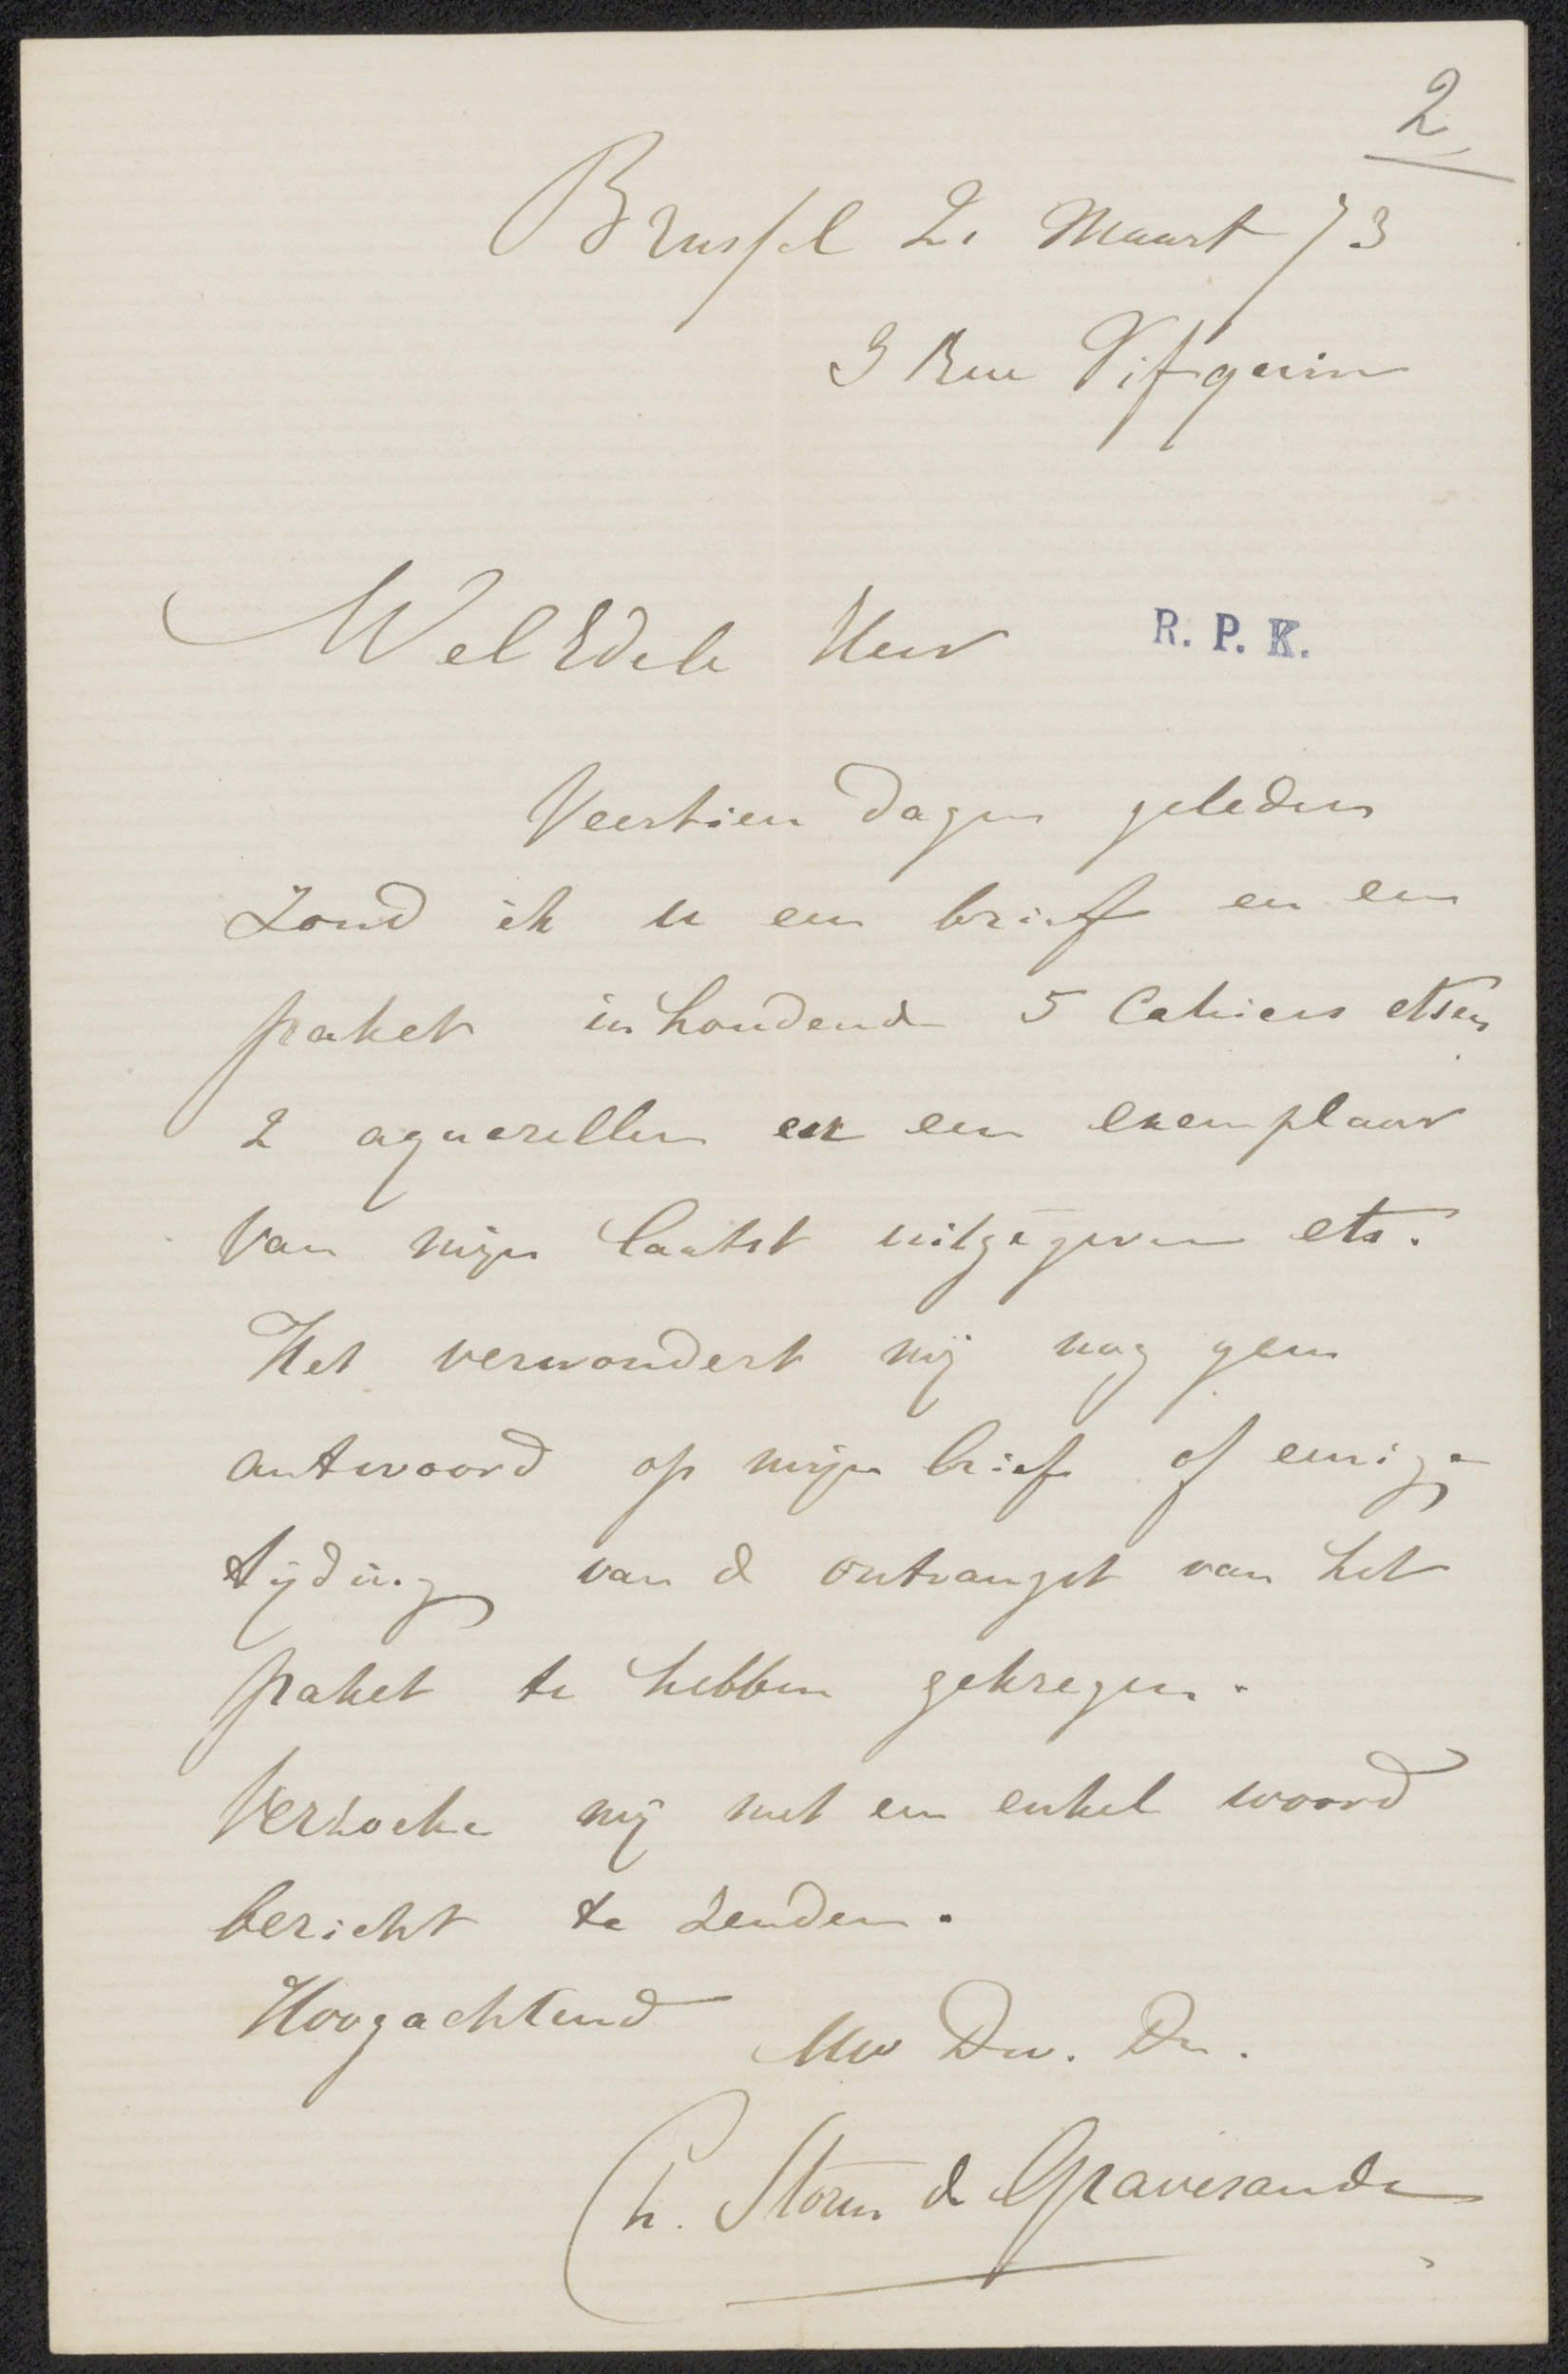 2
Brussel 21 Maart 73
3 Rue Vifquin
WelEdele Heer
R. P. K.
Veertien dagen geleden
zond ik u een brief en een
paket inhoudende 5 Cahiers etsen
2 aquarellen en een exemplaar
van mijn laatst uitgegeven ets.
Het verwondert mij nog geen
antwoord op mijn brief of eenige
tijding van de ontvangst van het
paket te hebben gekregen.
Verzoeke mij met een enkel woord
bericht te zenden.
Hoogachtend
Uw Dw. Dr.
Ch. Storm de Gravesande